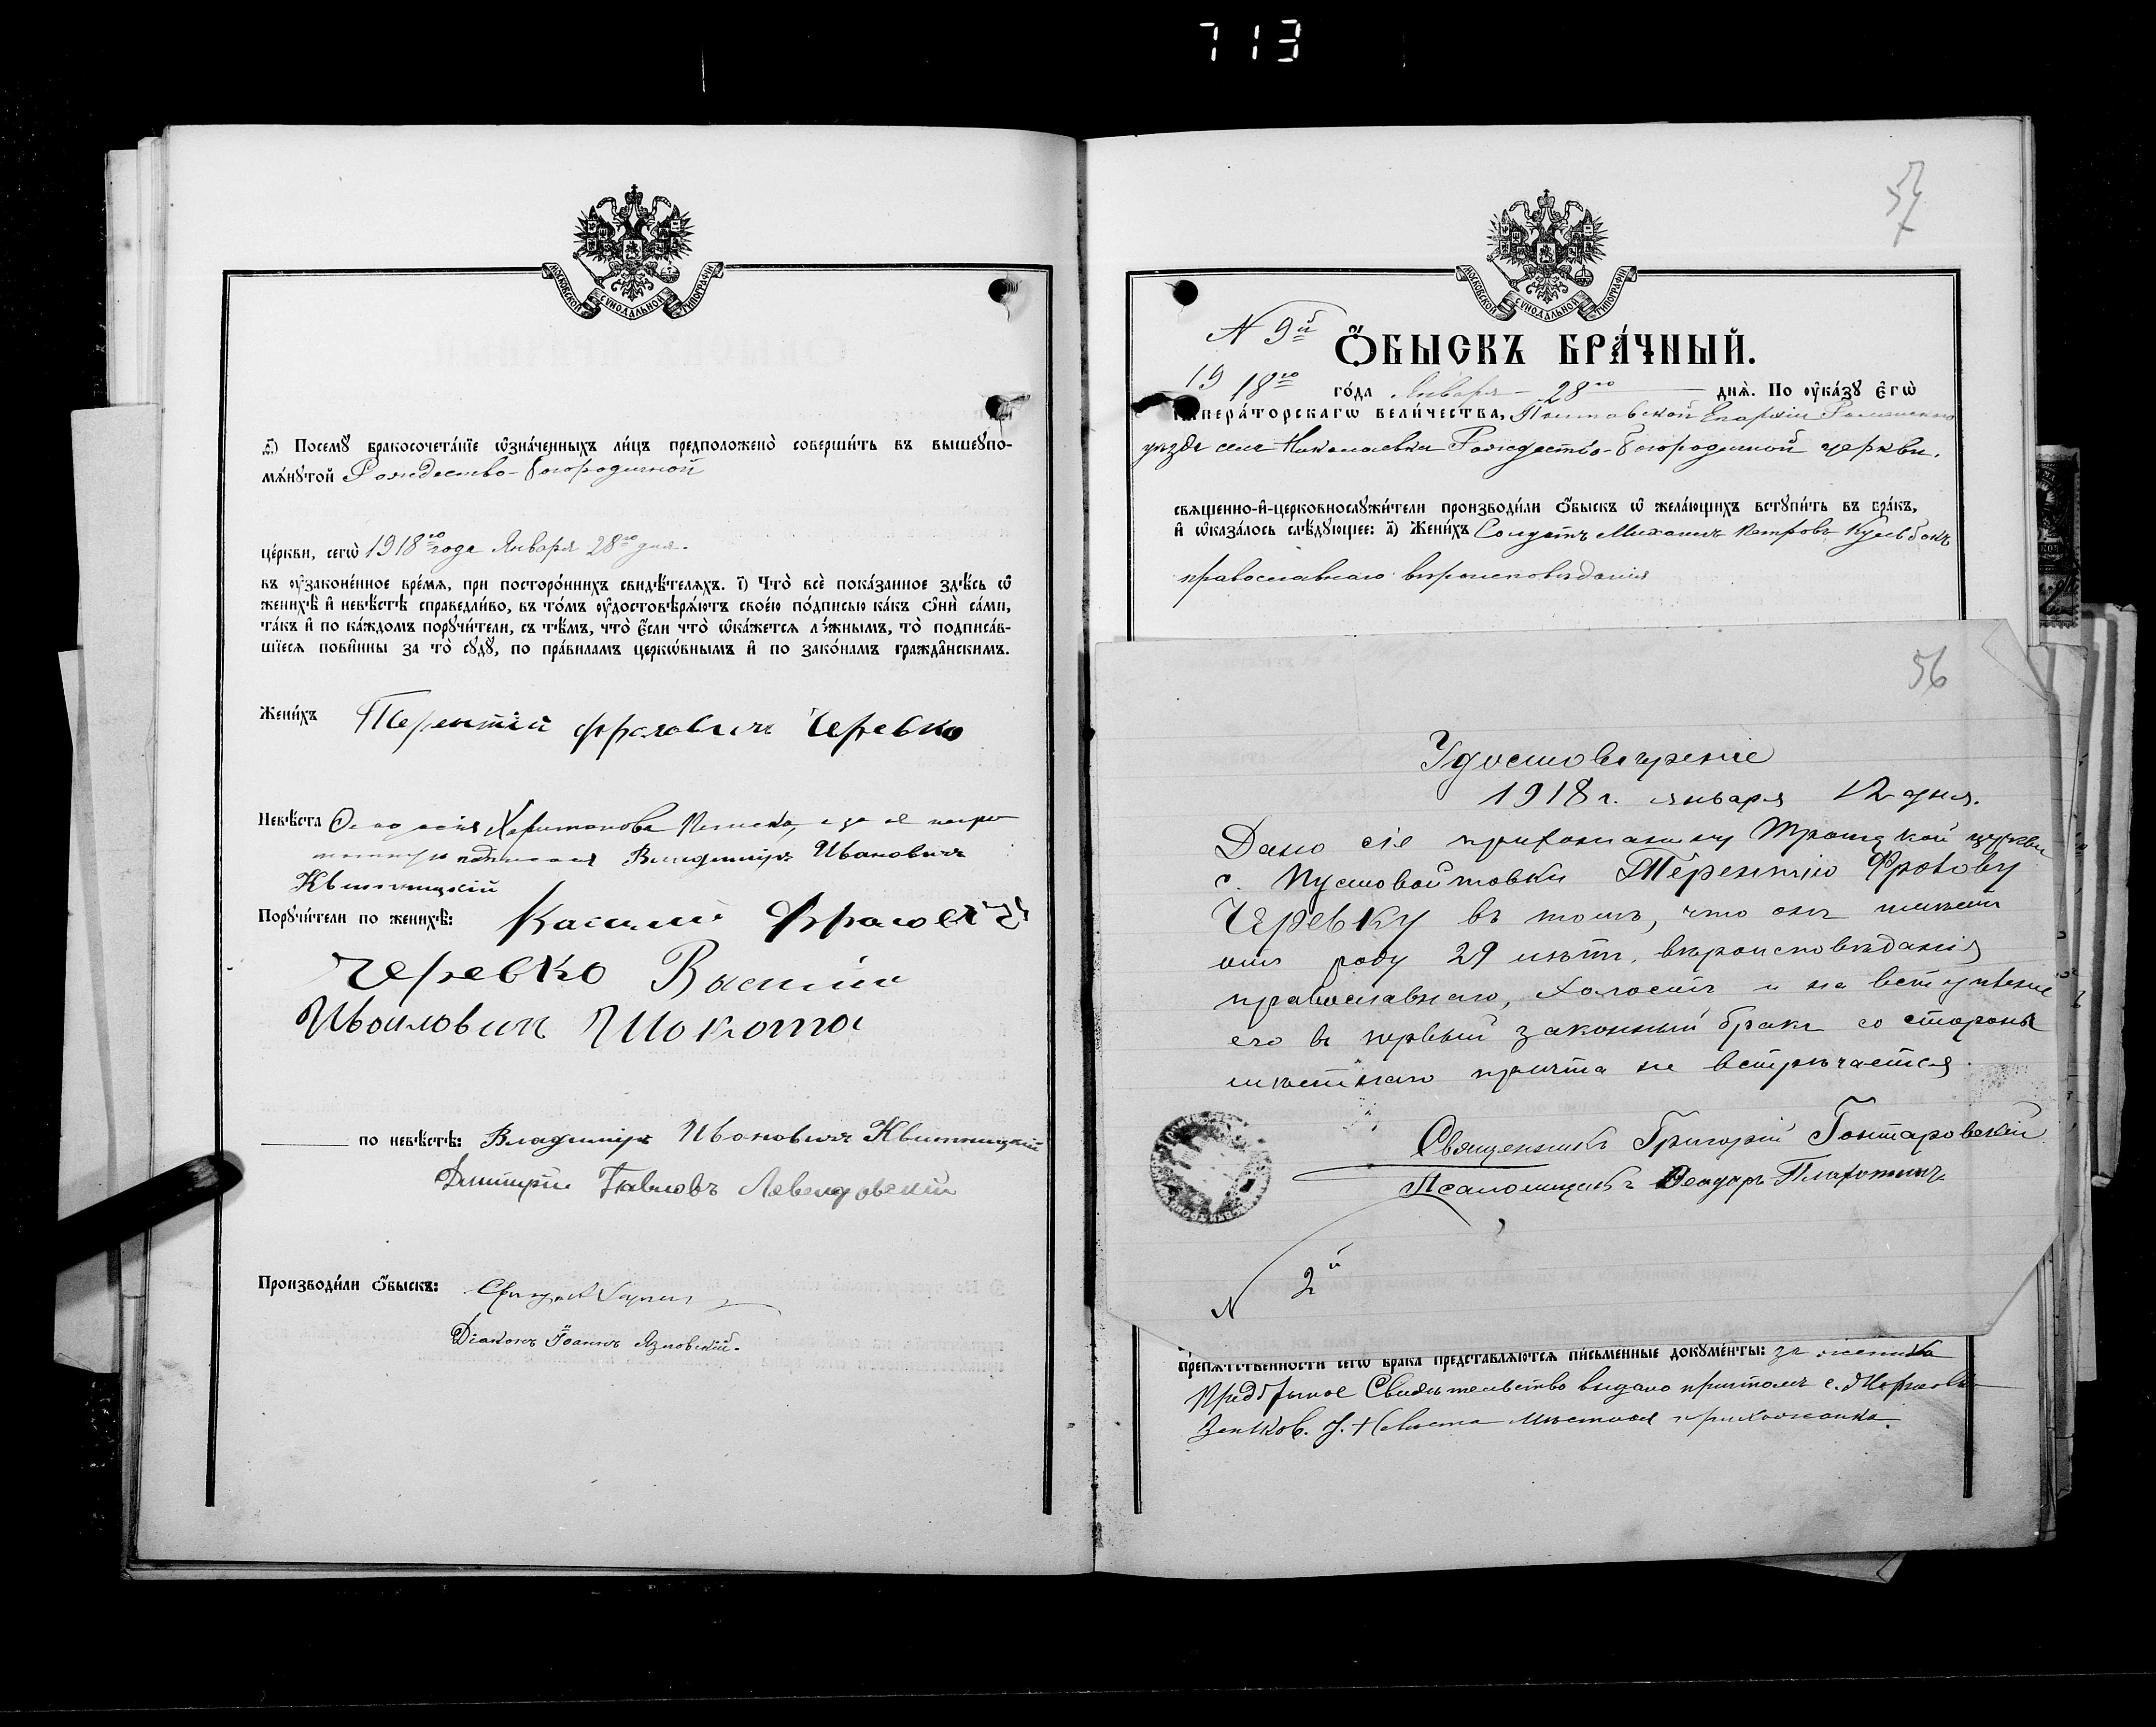 713
МОСКОВСКОЙ СѴНОДАЛЬНОЙ ТИПОГРАФІИ
ѳ҃) Посемꙋ̀ бракосочета́нїе ѡ҆зна́ченныхъ ли́цъ предположено̀ соверши́ть въ вышеꙋпо-
мѧ́нꙋтой Рождество-Богородичной
це́ркви, сегѡ̀ 1918го года Января 28го дня.
въ ᲂу҆зако́не́нное вре́мѧ, при посторо́ннихъ свидѣ́телѧхъ. і҃) Что̀ всѐ пока́занное здѣ́сь ѡ҆
женихѣ̀ и҆ невѣ́стѣ справедли́во, въ то́мъ ᲂу҆достовѣрѧ́ютъ свое́ю по́дписью ка́къ ѻ҆нѝ са́ми,
та́къ и҆ по ка́ждомъ порꙋчи́тели, съ тѣ́мъ, что̀ є҆́сли что̀ ѡ҆ка́жетсѧ ло́жнымъ, то̀ подписа́в-
шїесѧ пови́нны за то̀ сꙋдꙋ̀, по пра́виламъ церко́внымъ и҆ по зако́намъ гражда́нскимъ.
Жени́хъ Терентій Фролович Черевко
Невѣ́ста Феодосія Харитонова, а за ея негра-
мотную подписался Владиміръ Ивановичъ
Квитницкій
Порꙋчи́тели по женихѣ̀: Фролович
Черевко Василій
Шокота
по невѣ́стѣ: Владиміръ Ивановичъ Квитницкій
Дмитрій Павловъ
Производи́ли ѻ҆́быскъ:
Діаконъ Іоаннъ Язловскій.
57
МОСКОВСКОЙ СѴНОДАЛЬНОЙ ТИПОГРАФІИ
N 9й
Ѻ҆́БЫСКЪ БРА́ЧНЫЙ.
1918го го́да Января 28го днѧ̀. По ᲂу҆ка́зꙋ є҆гѡ̀
и҆мпера́торскагѡ вели́чества, Полтавской Епархіи Роменскаго
уезда села Николаевки Рождество-Богородичной церкви.
свѧще́нно-и҆-церковнослꙋжи́тели производи́ли ѻ҆́быскъ ѡ҆ жела́ющихъ встꙋпи́ть въ бра́къ,
и҆ ѡ҆каза́лось слѣ́дꙋющее: а҃) Жени́хъ Солдатъ Михаилъ Петровъ
православнаго вѣроисповѣданія
56
Удостовѣреніе
1918 г. января 12 дня.
Дано сіе прихожанину Троицкой церкви
с. Пустовойтовки Терентію Фролову
Черевку въ томъ, что онъ имѣетъ
отъ роду 29 лѣтъ, вѣроисповѣданія
православнаго, холостъ и на вступленіе
его въ первый законный бракъ со стороны
мѣстнаго причта не встрѣчается.
Священникъ Григорій Гонтаровскій
Псаломщикъ Ѳеодоръ
N 2й
препѧ́тственности сегѡ̀ бра́ка представлѧ́ютсѧ пи́сьменные докꙋме́нты: за жениха
Предбрачное Свидѣтельство выдано причтомъ с.
Зеньков. у. Невѣста мѣстная прихожанка.